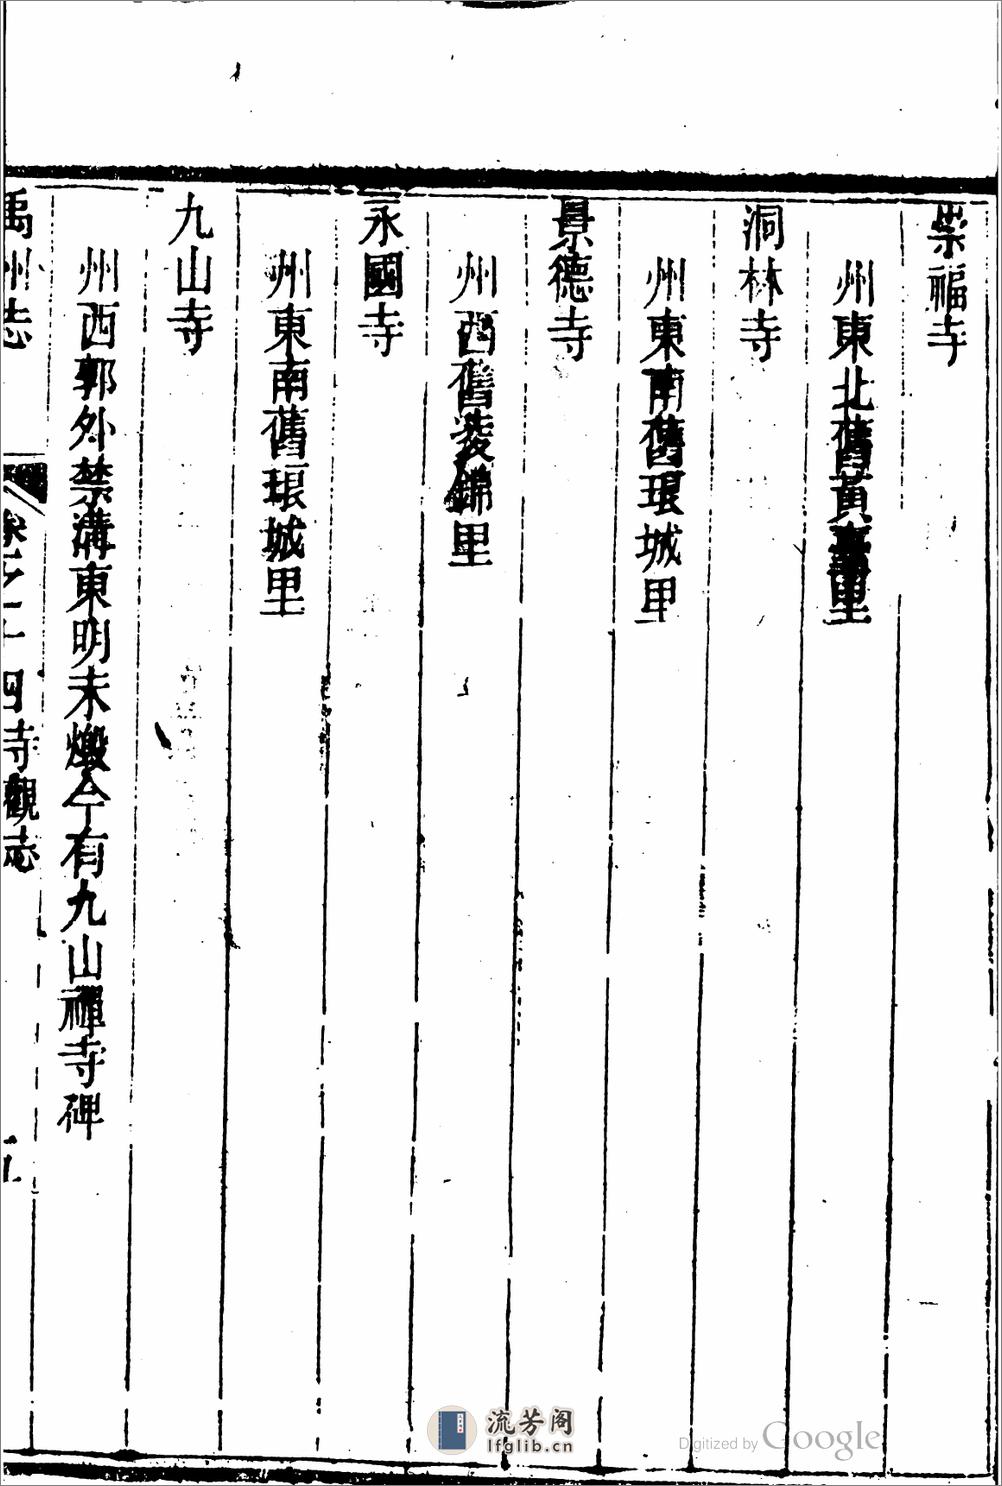 崇福寺
州東北舊黃臺里
洞林寺
州東南舊琅城里
景德寺
州西舊淩錦里
永國寺
州東南舊琅城里
九山寺
州西郭外禁溝東明末燬今有九山禪寺碑
禹州志
卷之十四寺觀志
五
流芳阁
lfglib.cn
Digitized by Google